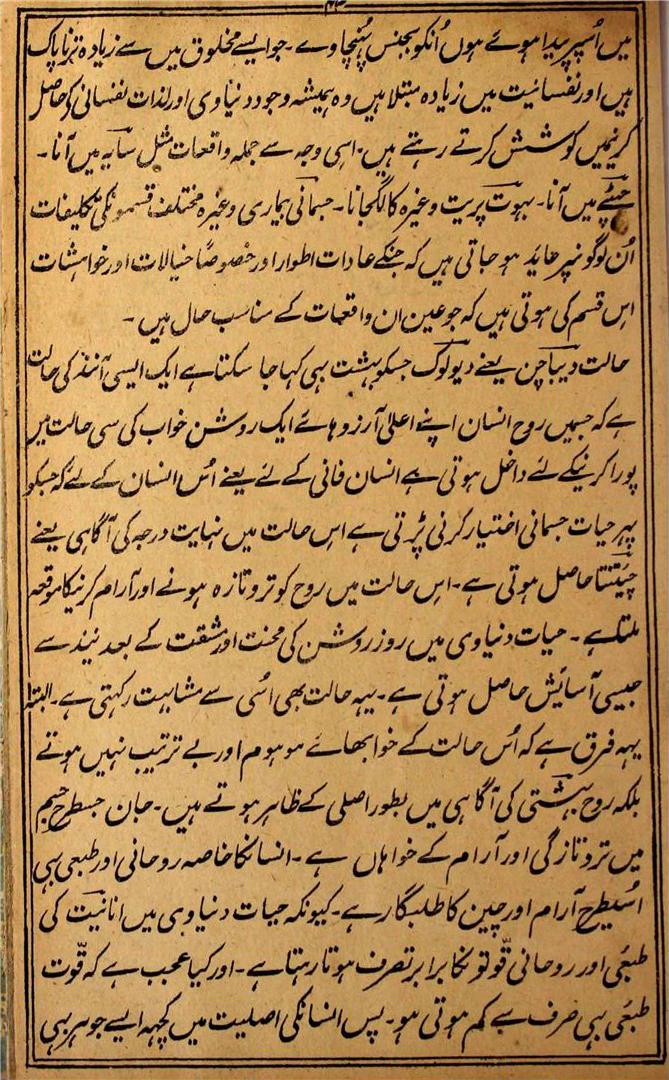 میں اُسپر پیدا ہوئے ہوں اُنکو بجنس پہنچاوے۔ جو ایسے مخلوق میں سے زیادہ تر ناپاک
ہیں اور نفسانیت میں زیادہ مبتلا ہیں وہ ہمیشہ وجود دنیاوی اور لذات نفسانی کو حاصل
کرنیمیں کوشش کرتے رہتے ہیں۔ اسی وجہ سے جملہ واقعات مثل سایہ میں آنا۔
جھپٹے میں آنا۔ بہوت پریت وغیرہ کا لگجانا۔ جسمانی بیماری وغیرہ مختلف قسمونکی تکلیفات
اُن لوگونپر عاید ہو جاتی ہیں کہ جنکے عادات اطوار اور خصوصاً خیالات اور خواہشات
اس قسم کی ہوتی ہیں کہ جو عین ان واقعات کے مناسب حال ہیں۔
حالت دیباچن یعنے دیولوک جسکو بہشت بہی کہا جا سکتا ہے ایک ایسی آنند کی حالت
ہے کہ جسمیں روح انسان اپنے اعلیٰ آرزوہائے ایک روشن خواب کی سی حالت میں
پورا کرنیکے لئے داخل ہوتی ہے انسان فانی کے لئے یعنے اُس انسان کے لئے کہ جسکو
پہر حیات جسمانی اختیار کرنی پڑتی ہے اس حالت میں نہایت درجہ کی آگاہی یعنے
چیتنتا حاصل ہوتی ہے۔ اس حالت میں روح کو تروتازہ ہونے اور آرام کرنیکا موقعہ
ملتا ہے۔ حیات دنیاوی میں روز روشن کی محنت اور مشقت کے بعد نیند سے
جیسی آسایش حاصل ہوتی ہے۔ یہہ حالت بھی اُسی سے مشابہت رکہتی ہے۔ البتہ
یہہ فرق ہے کہ اُس حالت کے خوابہائے موہوم اور بے ترتیب نہیں ہوتے
بلکہ روح بہشتی کی آگاہی میں بطور اصلی کے ظاہر ہوتے ہیں۔ جان جسطرح جسم
میں تروتازگی اور آرام کے خواہاں ہے۔ انسانکا خاصہ روحانی اور طبعی بہی
اُسیطرح آرام اور چین کا طلبگار ہے۔ کیونکہ حیات دنیاوی میں انانیت کی
طبعی اور روحانی قوتونکا برابر تصرف ہوتا رہتا ہے۔ اور کیا عجب ہے کہ قوت
طبعی بہی صرف سے کم ہوتی ہو۔ پس انسانکی اصلیت میں کچہہ ایسے جوہر بہی